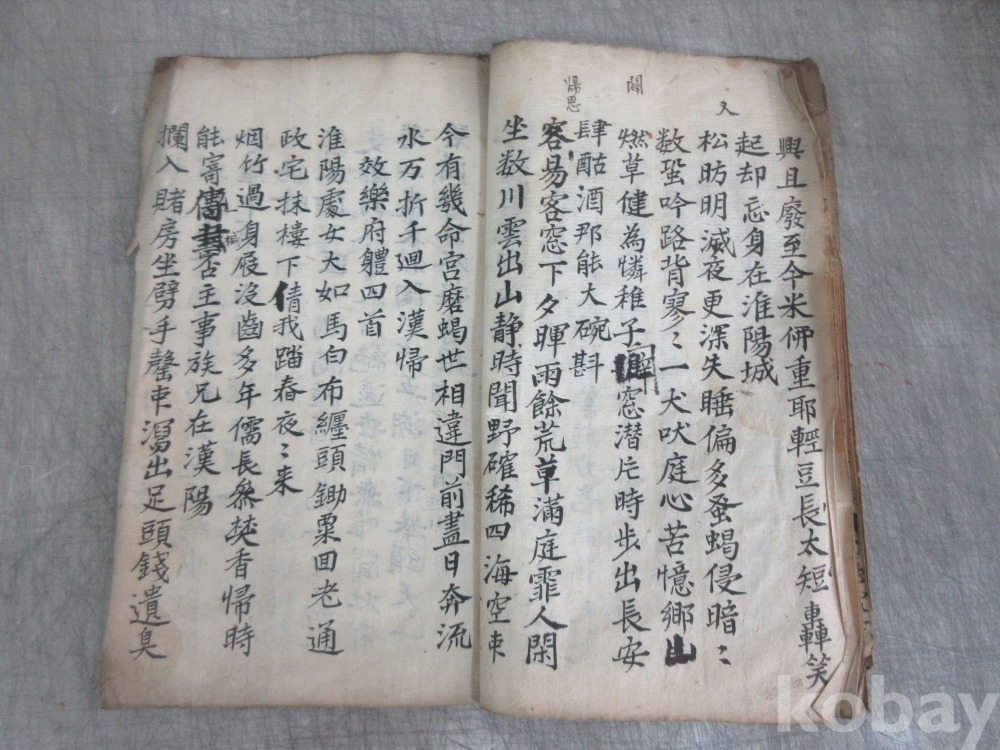 興且廢至今米佛重耶輕豆長太短轟笑
起却忘身在淮陽城
又
松肪明滅夜更深失睡偏多蚤蝎侵暗〻
数蛩吟路背寥〻一犬吠庭心苦憶鄉山
閙
燃草健為憐稚子窓潜片時步出長安
肆酤酒那能大碗斟
歸思
容易客窓下夕暉雨餘荒草滿庭霏人閑
坐数川雲出山静時聞野確稀四海空朿
今有幾命宮磨蝎世相違門前盡日奔流
水万折千廻入漢歸
效樂府軆四首
淮陽處女大如馬白布纏頭鋤粟回老通
政宅抹樓下倩我踏春夜〻来
烟竹過身屐沒齒多年儒長叅焚香帰時
能寄傳否主事族兄在漢陽
攔入賭房坐劈手罄朿瀉出足頭錢遺臭
kobay